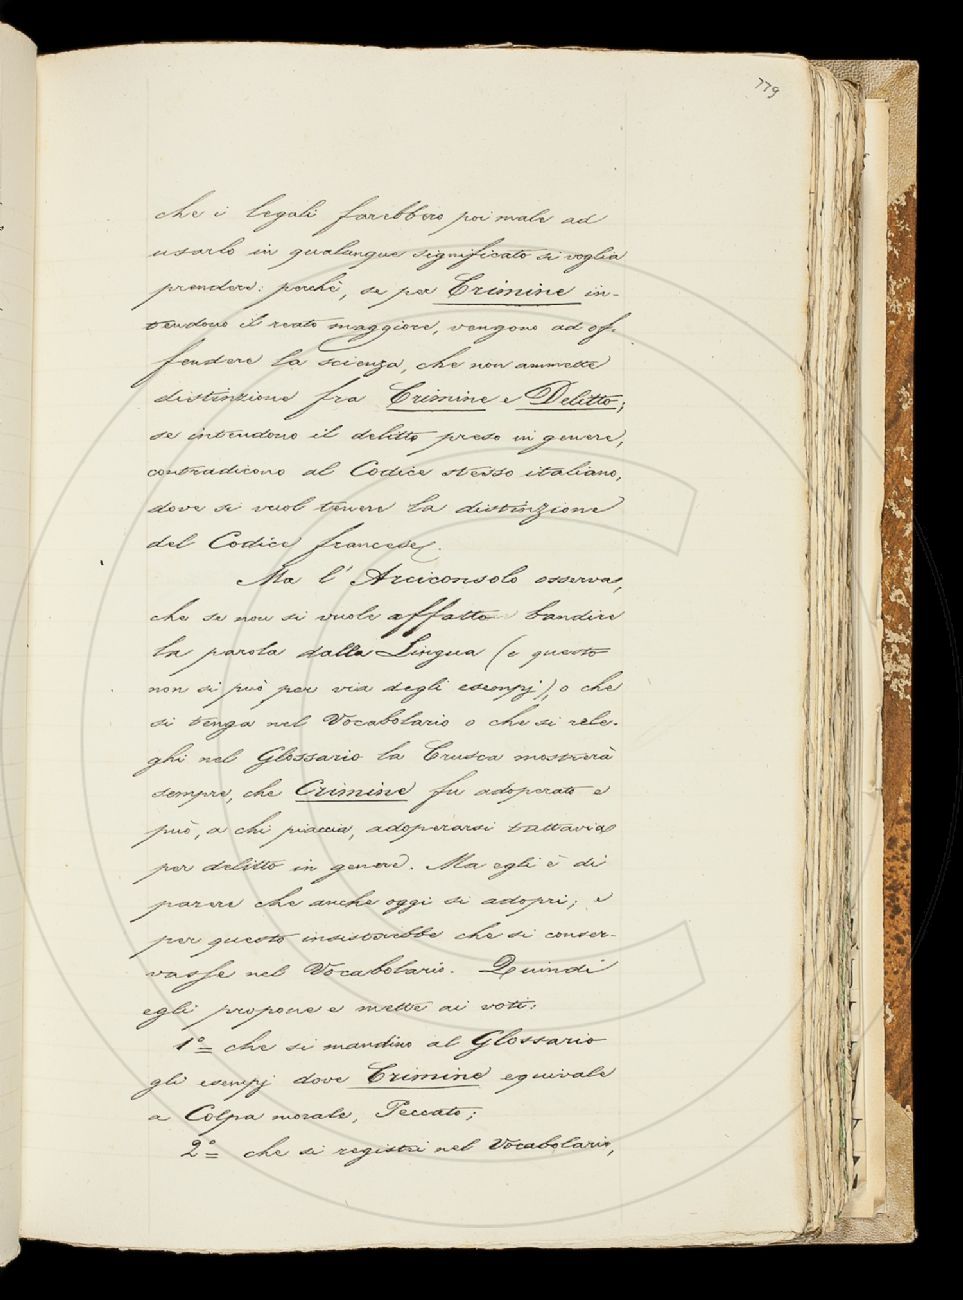 779
che i legali farebbero poi male ad
usarlo in qualunque significato si voglia
prendere: perchè, se per Crimine in-
tendono il reato maggiore, vengono ad of-
fendere la scienza, che non ammette
distinzione fra Crimine e Delitto;
se intendono il delitto preso in genere,
contradicono al Codice stesso italiano,
dove si vuol tenere la distinzione
del Codice francese.
Ma l'Arciconsolo osserva,
che se non si vuole affatto bandire
la parola dalla Lingua (e questo
non si può per via degli esempj), o che
si tenga nel Vocabolario o che si rele-
ghi nel Glossario la Crusca mostrerà
sempre, che Crimine fu adoperato e
può, a chi piaccia, adoperarsi tuttavia
per delitto in genere. Ma egli è di
parere che anche oggi si adopri; e
per questo insisterebbe che si conser-
vasse nel Vocabolario. Quindi
egli propone e mette ai voti:
1º= che si mandino al Glossario
gli esempj dove Crimine equivale
a Colpa morale, Peccato;
2º= che si registri nel Vocabolario,